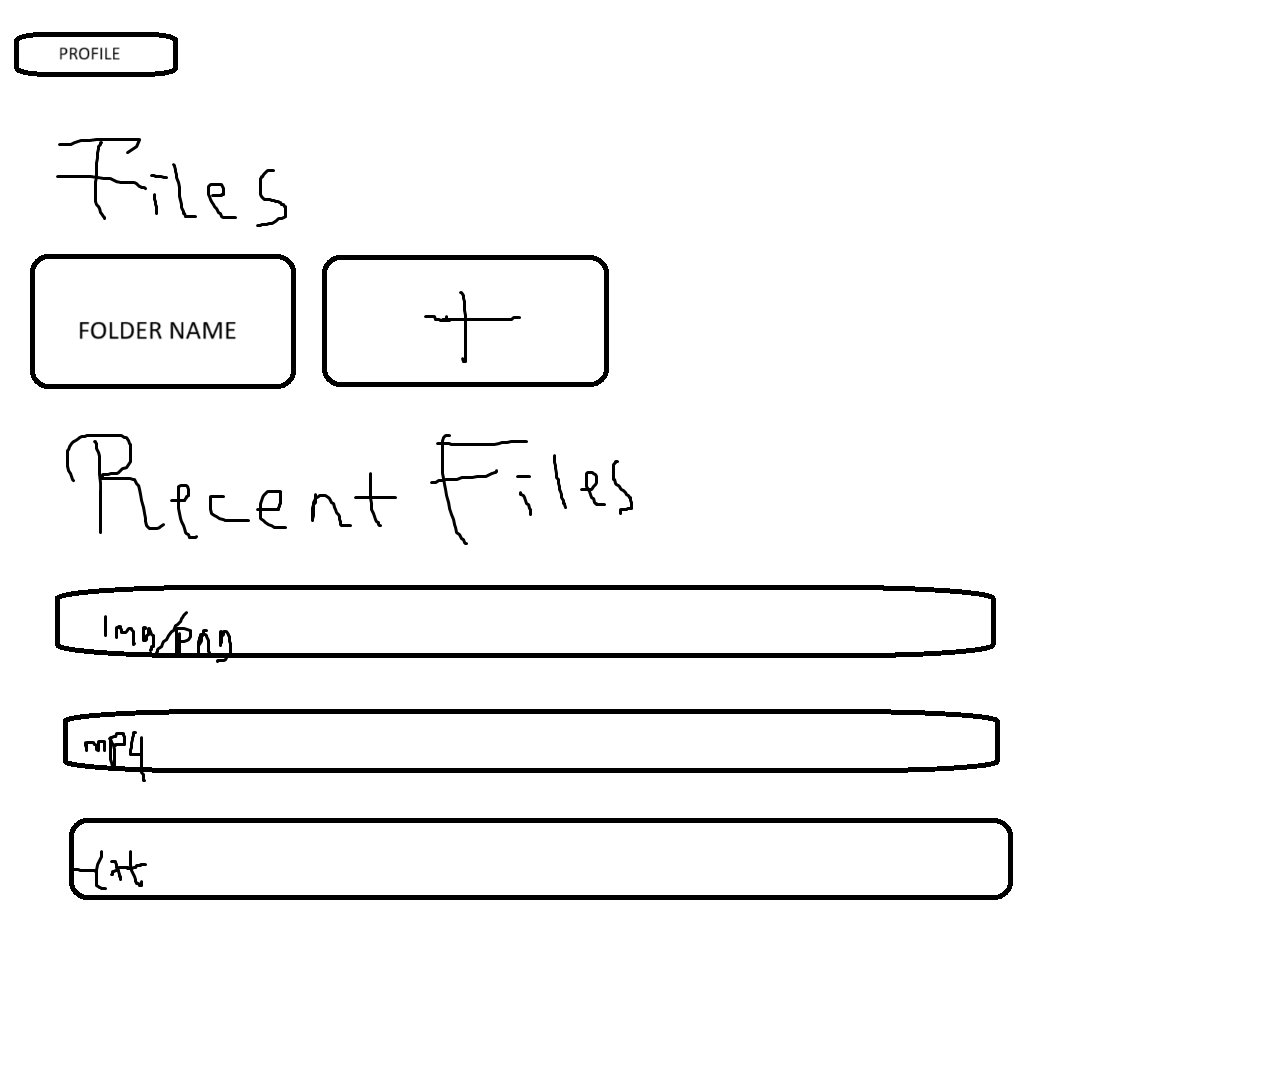 PROFILE
Files
FOLDER NAME
+
Recent Files
Img/png
mp4
txt